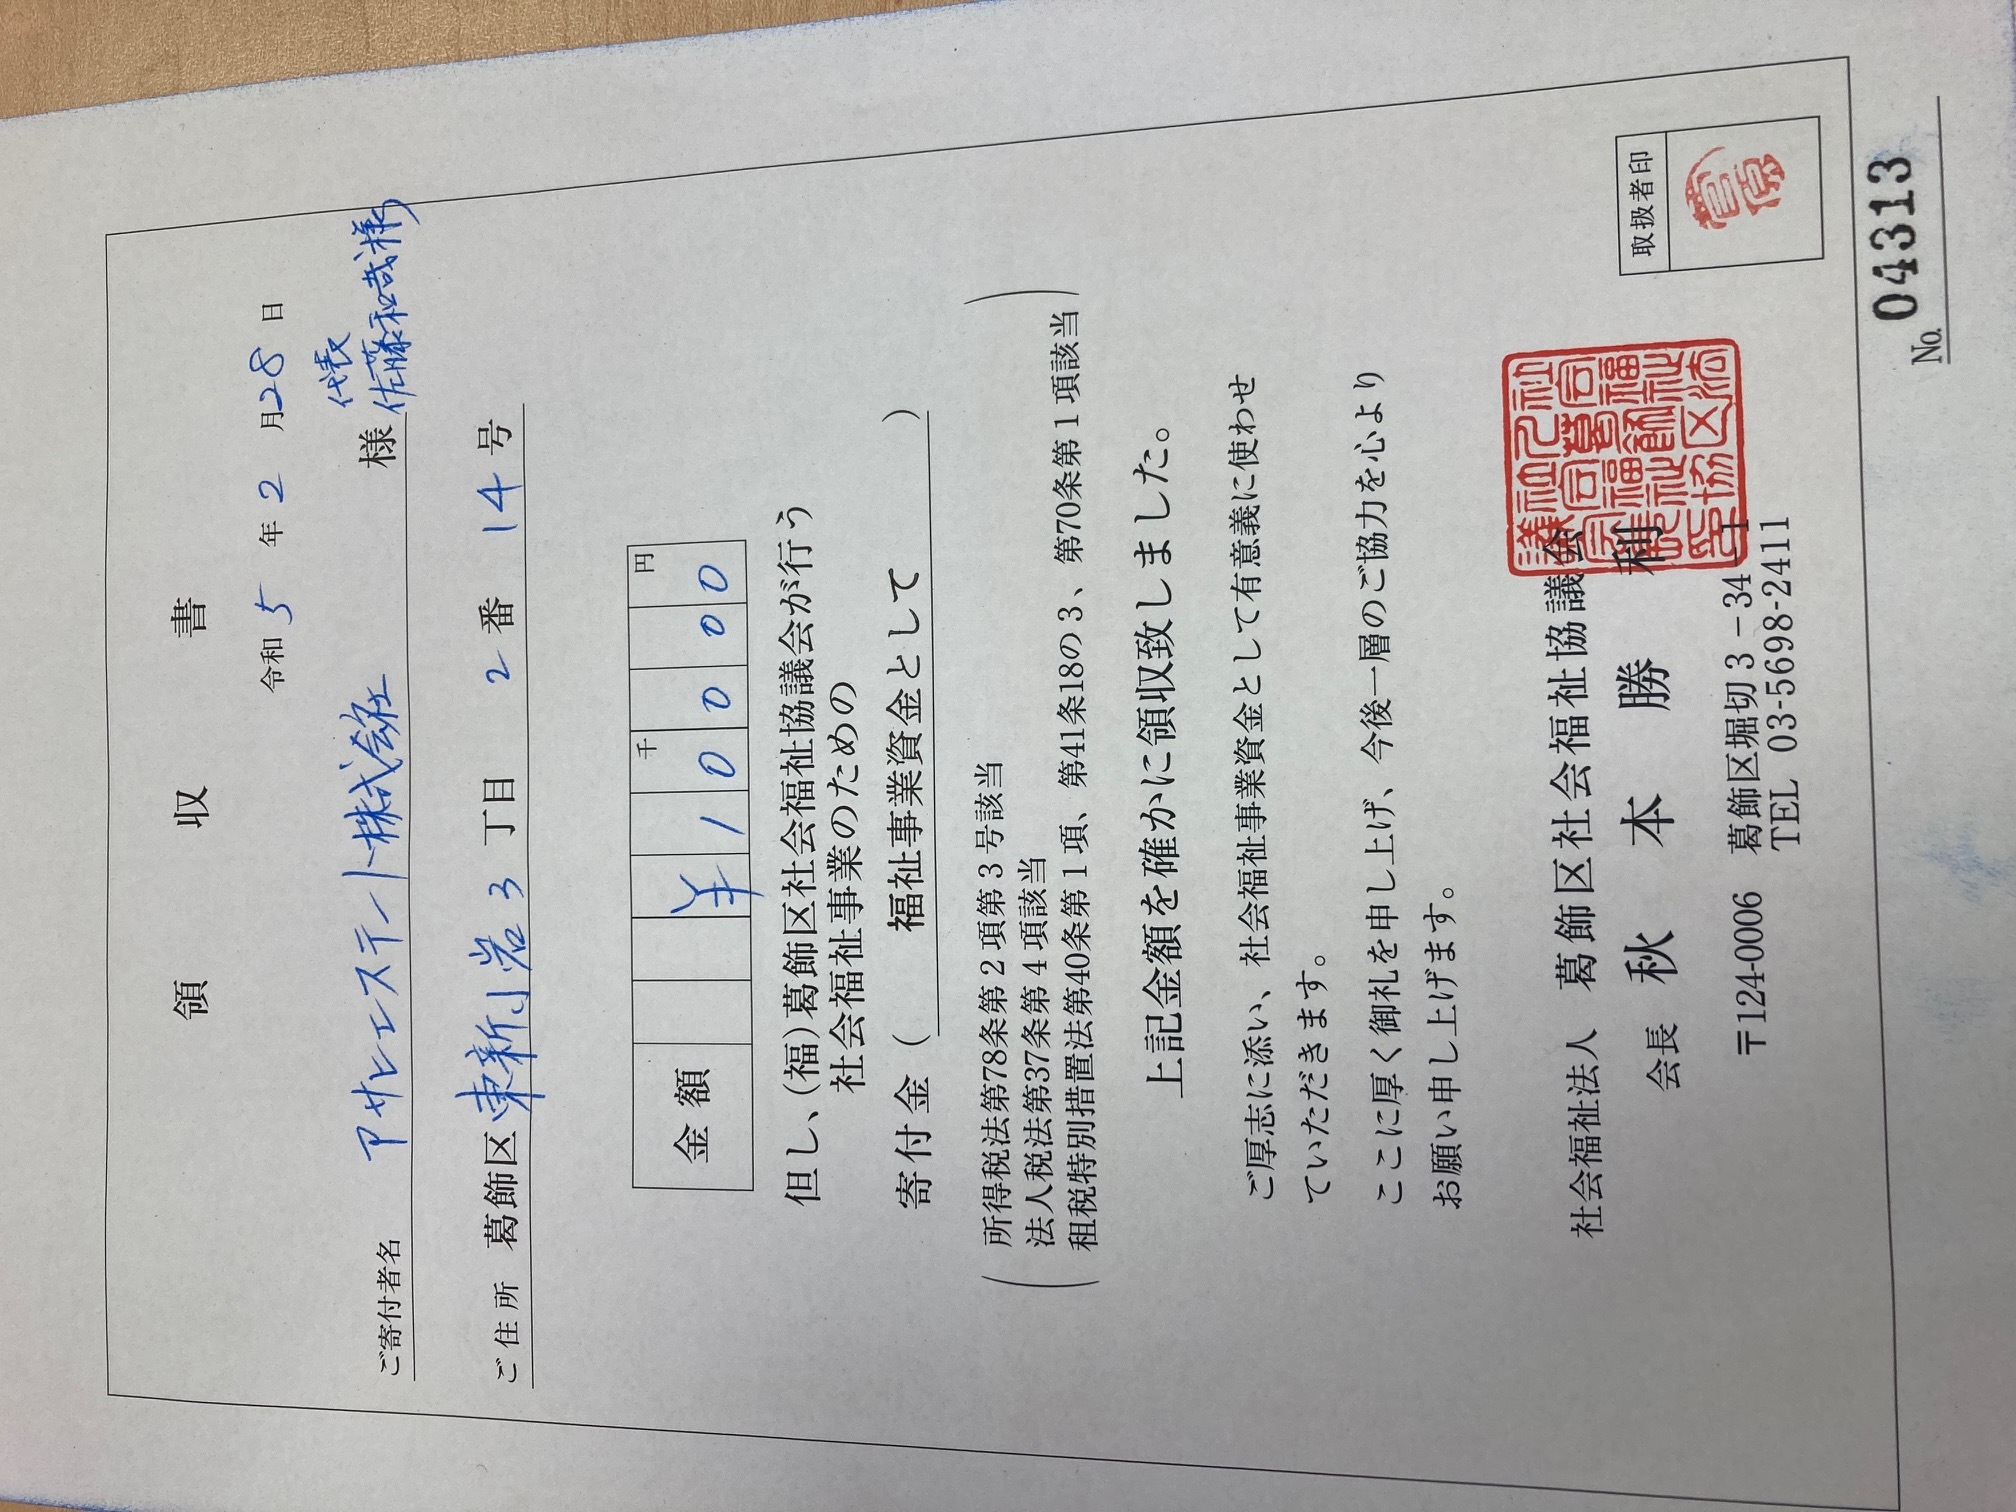 領収書
令和 5 年 2 月 28 日
代表
ご寄付者名 アサヒエステート株式会社 様 佐藤和哉様
ご住所 葛飾区 東新小岩 3 丁目 2 番 14 号
金額 ¥ 1 0 千 0 0 0 円
但し、(福)葛飾区社会福祉協議会が行う
社会福祉事業のための
寄付金( 福祉事業資金として )
所得税法第78条第2項第3号該当
法人税法第37条第4項該当
租税特別措置法第40条第1項、第41条18の3、第70条第1項該当
上記金額を確かに領収致しました。
ご厚志に添い、社会福祉事業資金として有意義に使わせ
ていただきます。
ここに厚く御礼を申し上げ、今後一層のご協力を心より
お願い申し上げます。
社会福祉法人 葛飾区社会福祉協議会
会長 秋本勝利
〒124-0006 葛飾区堀切3-34-1
TEL 03-5698-2411
取扱者印
No. 04313